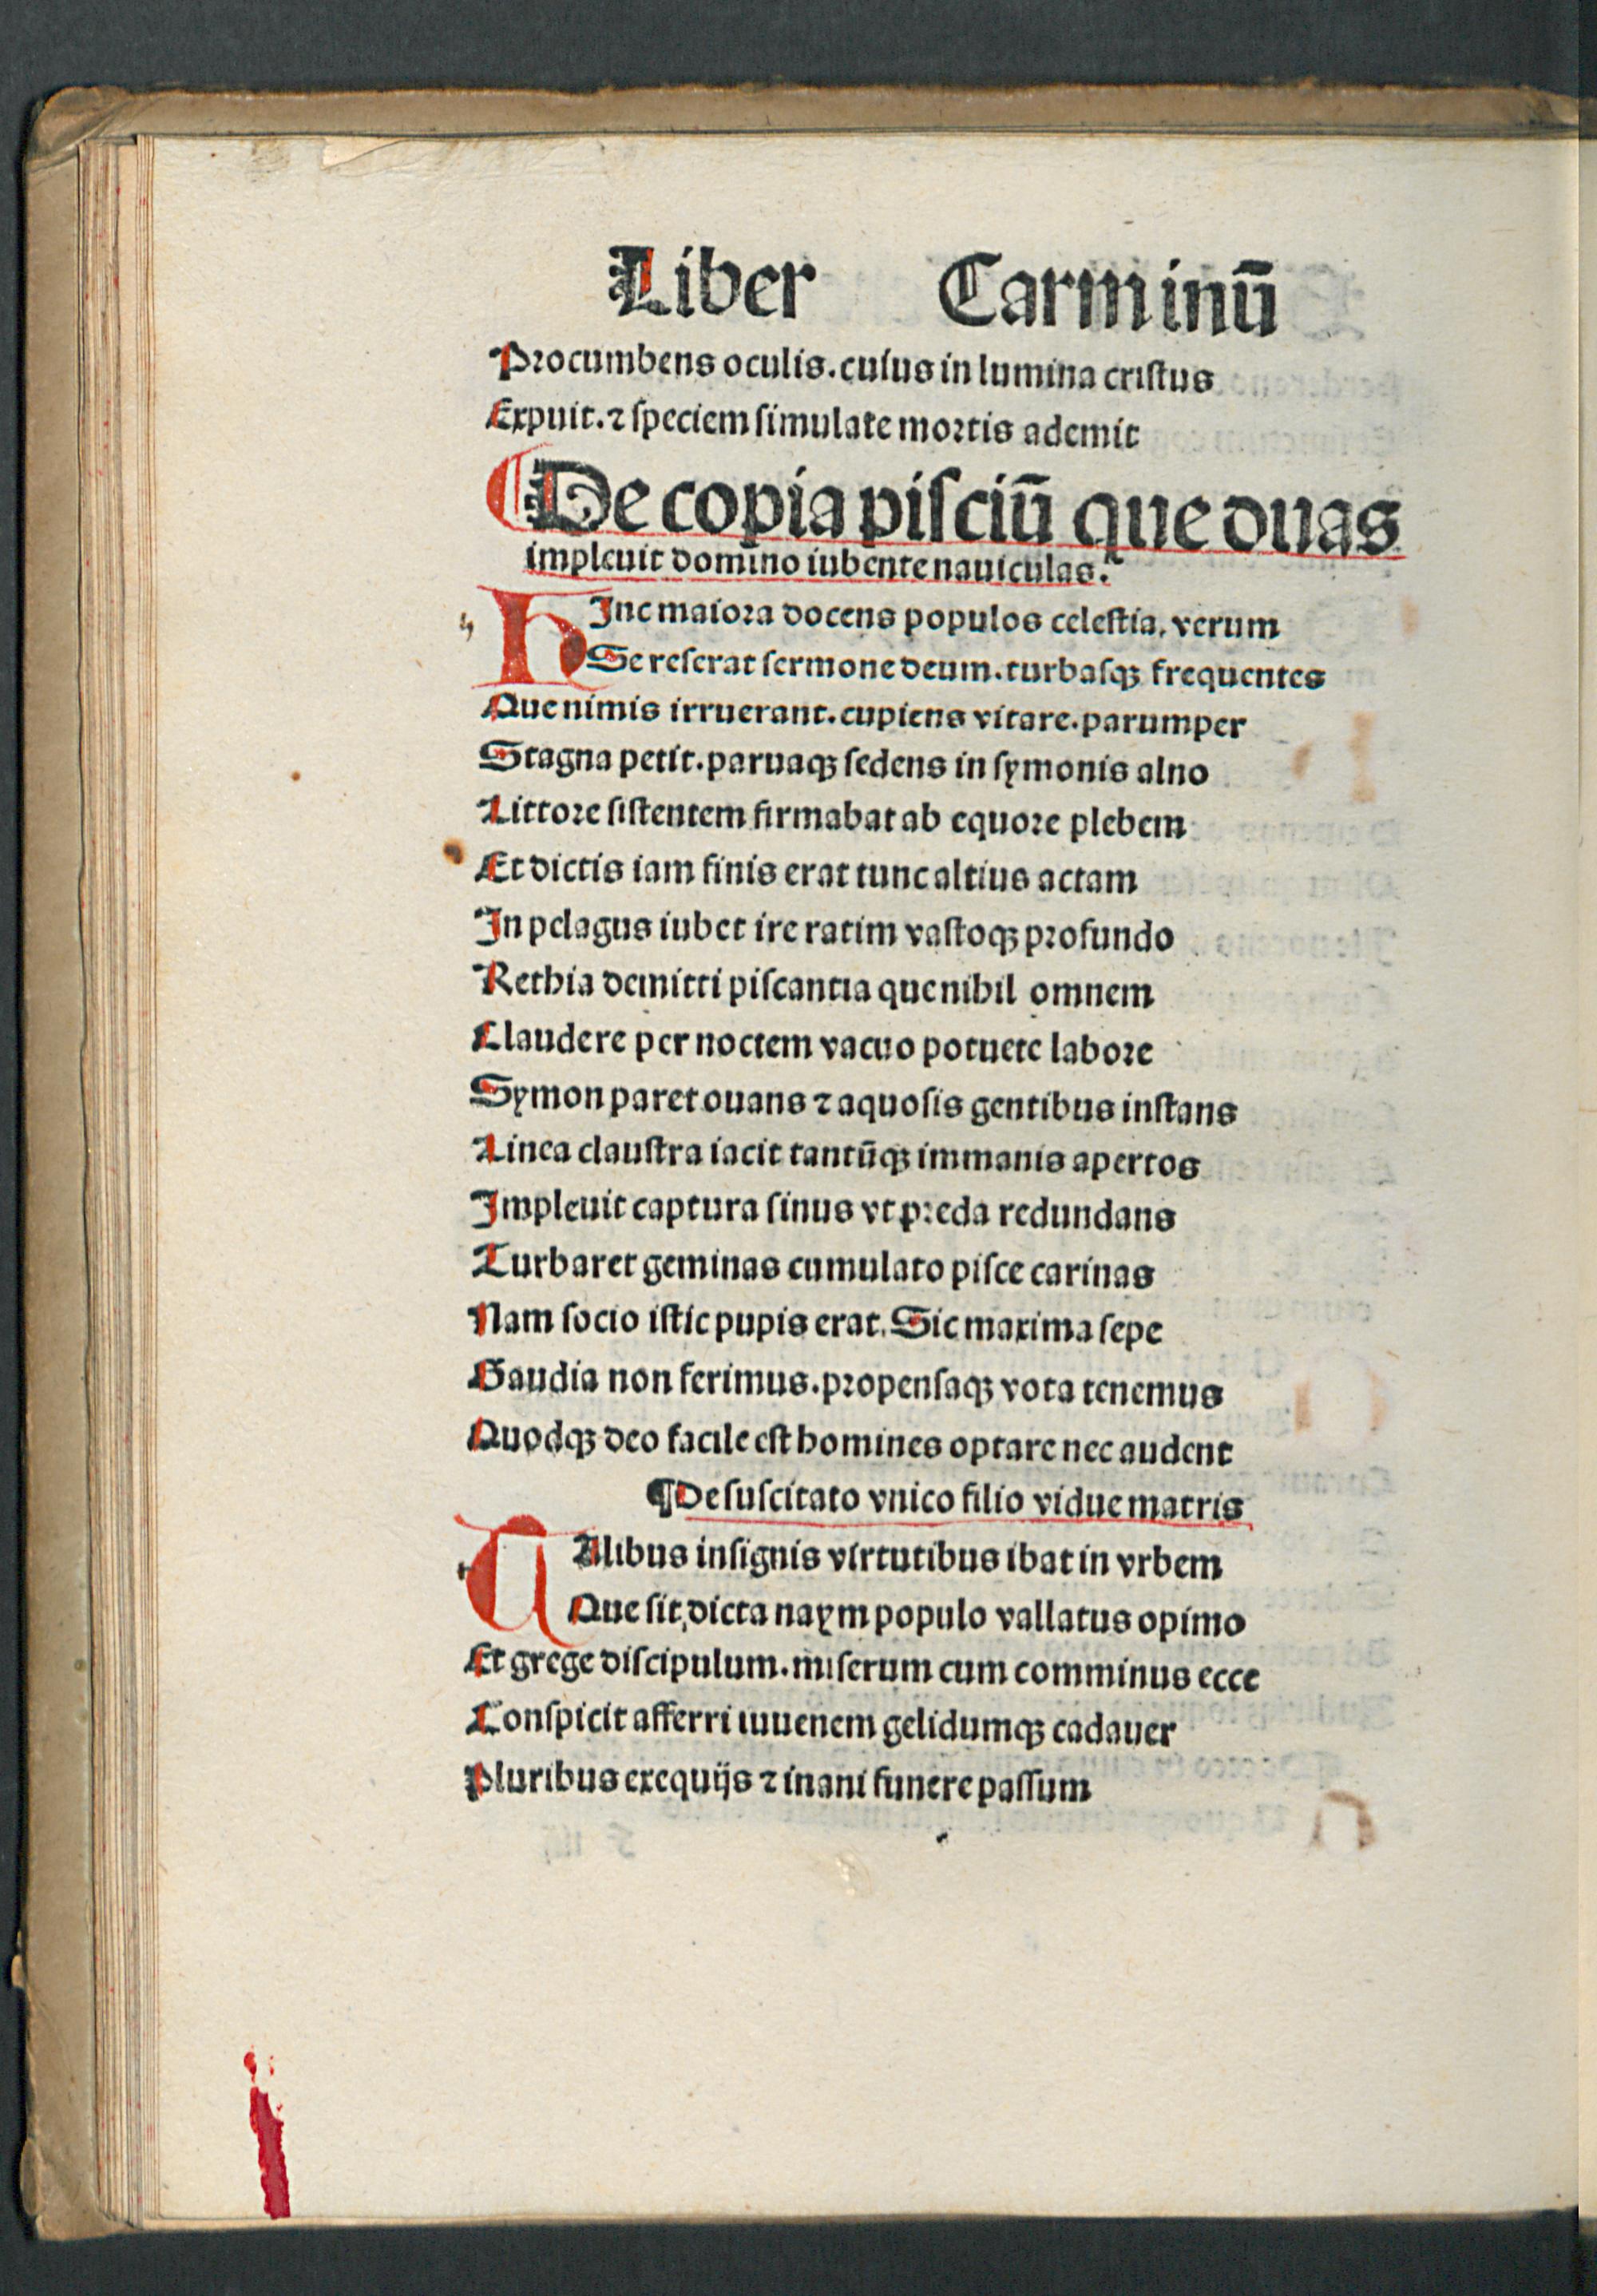 Liber Carminū
Procumbens oculis. cuius in lumina cristus
Expuit. ⁊ speciem simulate mortis ademit
De copia pisciū que duas
impleuit domino iubente nauiculas.
HInc maiora docens populos celestia, verum
Se reserat sermone deum. turbasqꝫ frequentes
Que nimis irruerant. cupiens vitare. parumper
Stagna petit. paruaqꝫ sedens in symonis alno
Littore sistentem firmabat ab equore plebem
Et dictis iam finis erat tunc altius actam
In pelagus iubet ire ratim vastoqꝫ profundo
Rethia demitti piscantia que nihil omnem
Claudere per noctem vacuo potuere labore
Symon paret ouans ⁊ aquosis gentibus instans
Linea claustra iacit tantūqꝫ immanis apertos
Impleuit captura sinus vt preda redundans
Turbaret geminas cumulato pisce carinas
Nam socio istic pupis erat. Sic maxima sepe
Gaudia non ferimus. propensaqꝫ vota tenemus
Quodqꝫ deo facile est homines optare nec audent
¶De suscitato vnico filio vidue matris
TAlibus insignis virtutibus ibat in vrbem
Que sit, dicta naym populo vallatus opimo
Et grege discipulum. miserum cum comminus ecce
Conspicit afferri iuuenem gelidumqꝫ cadauer
Pluribus exequijs ⁊ inani funere passum